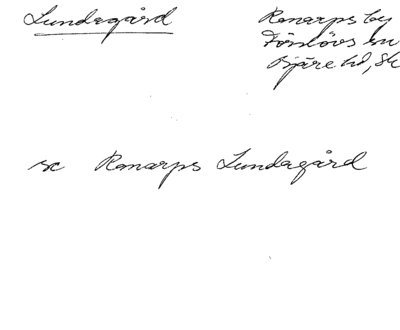 Lundagård
Ranarps by
Förslövs sn
Bjäre hd, Sk
se Ranarps Lundagård